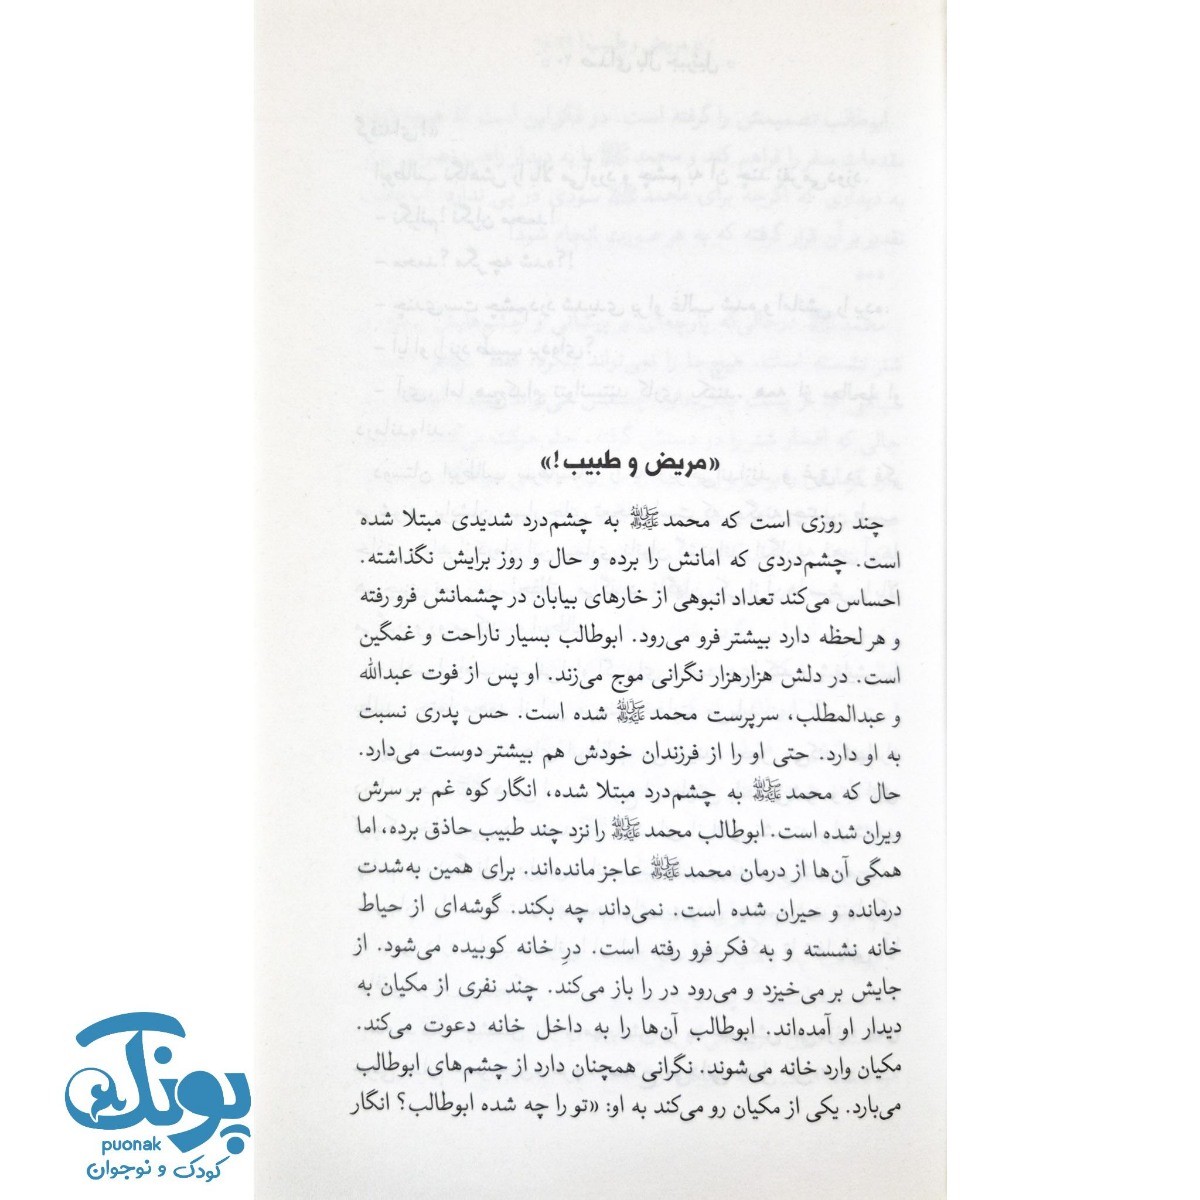 «مریض و طبیب!»
چند روزی است که محمدﷺ به چشم‌درد شدیدی مبتلا شده
است. چشم‌دردی که امانش را برده و حال و روز برایش نگذاشته.
احساس می‌کند تعداد انبوهی از خارهای بیابان در چشمانش فرو رفته
و هر لحظه دارد بیشتر فرو می‌رود. ابوطالب بسیار ناراحت و غمگین
است. در دلش هزارهزار نگرانی موج می‌زند. او پس از فوت عبدالله
و عبدالمطلب، سرپرست محمدﷺ شده است. حس پدری نسبت
به او دارد. حتی او را از فرزندان خودش هم بیشتر دوست می‌دارد.
حال که محمدﷺ به چشم‌درد مبتلا شده، انگار کوه غم بر سرش
ویران شده است. ابوطالب محمدﷺ را نزد چند طبیب حاذق برده، اما
همگی آن‌ها از درمان محمدﷺ عاجز مانده‌اند. برای همین به‌شدت
درمانده و حیران شده است. نمی‌داند چه بکند. گوشه‌ای از حیاط
خانه نشسته و به فکر فرو رفته است. درِ خانه کوبیده می‌شود. از
جایش بر می‌خیزد و می‌رود در را باز می‌کند. چند نفری از مکیان به
دیدار او آمده‌اند. ابوطالب آن‌ها را به داخل خانه دعوت می‌کند.
مکیان وارد خانه می‌شوند. نگرانی همچنان دارد از چشم‌های ابوطالب
می‌بارد. یکی از مکیان رو می‌کند به او: «تو را چه شده ابوطالب؟ انگار
پونک
puonak
کودک و نوجوان